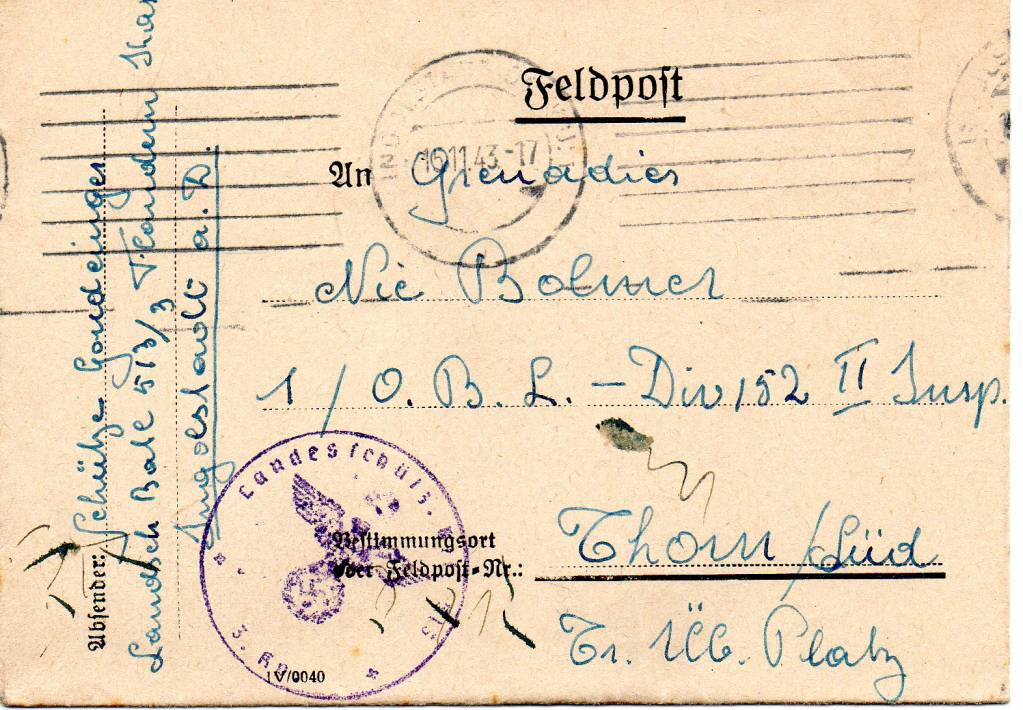 Feldpost
16.11.43.-17
An Grenadier
Nic Bolmer
1/O. B. L. – Div 152 II Insp.
Bestimmungsort
oder Feldpost-Nr.:
Thorn/Süd
Tr. Üb. Platz
Absender: Schütze
Landsch Batl 513/3
Ingolstadt a. D.
Landesschütz.
3. Kp.
IV/0040